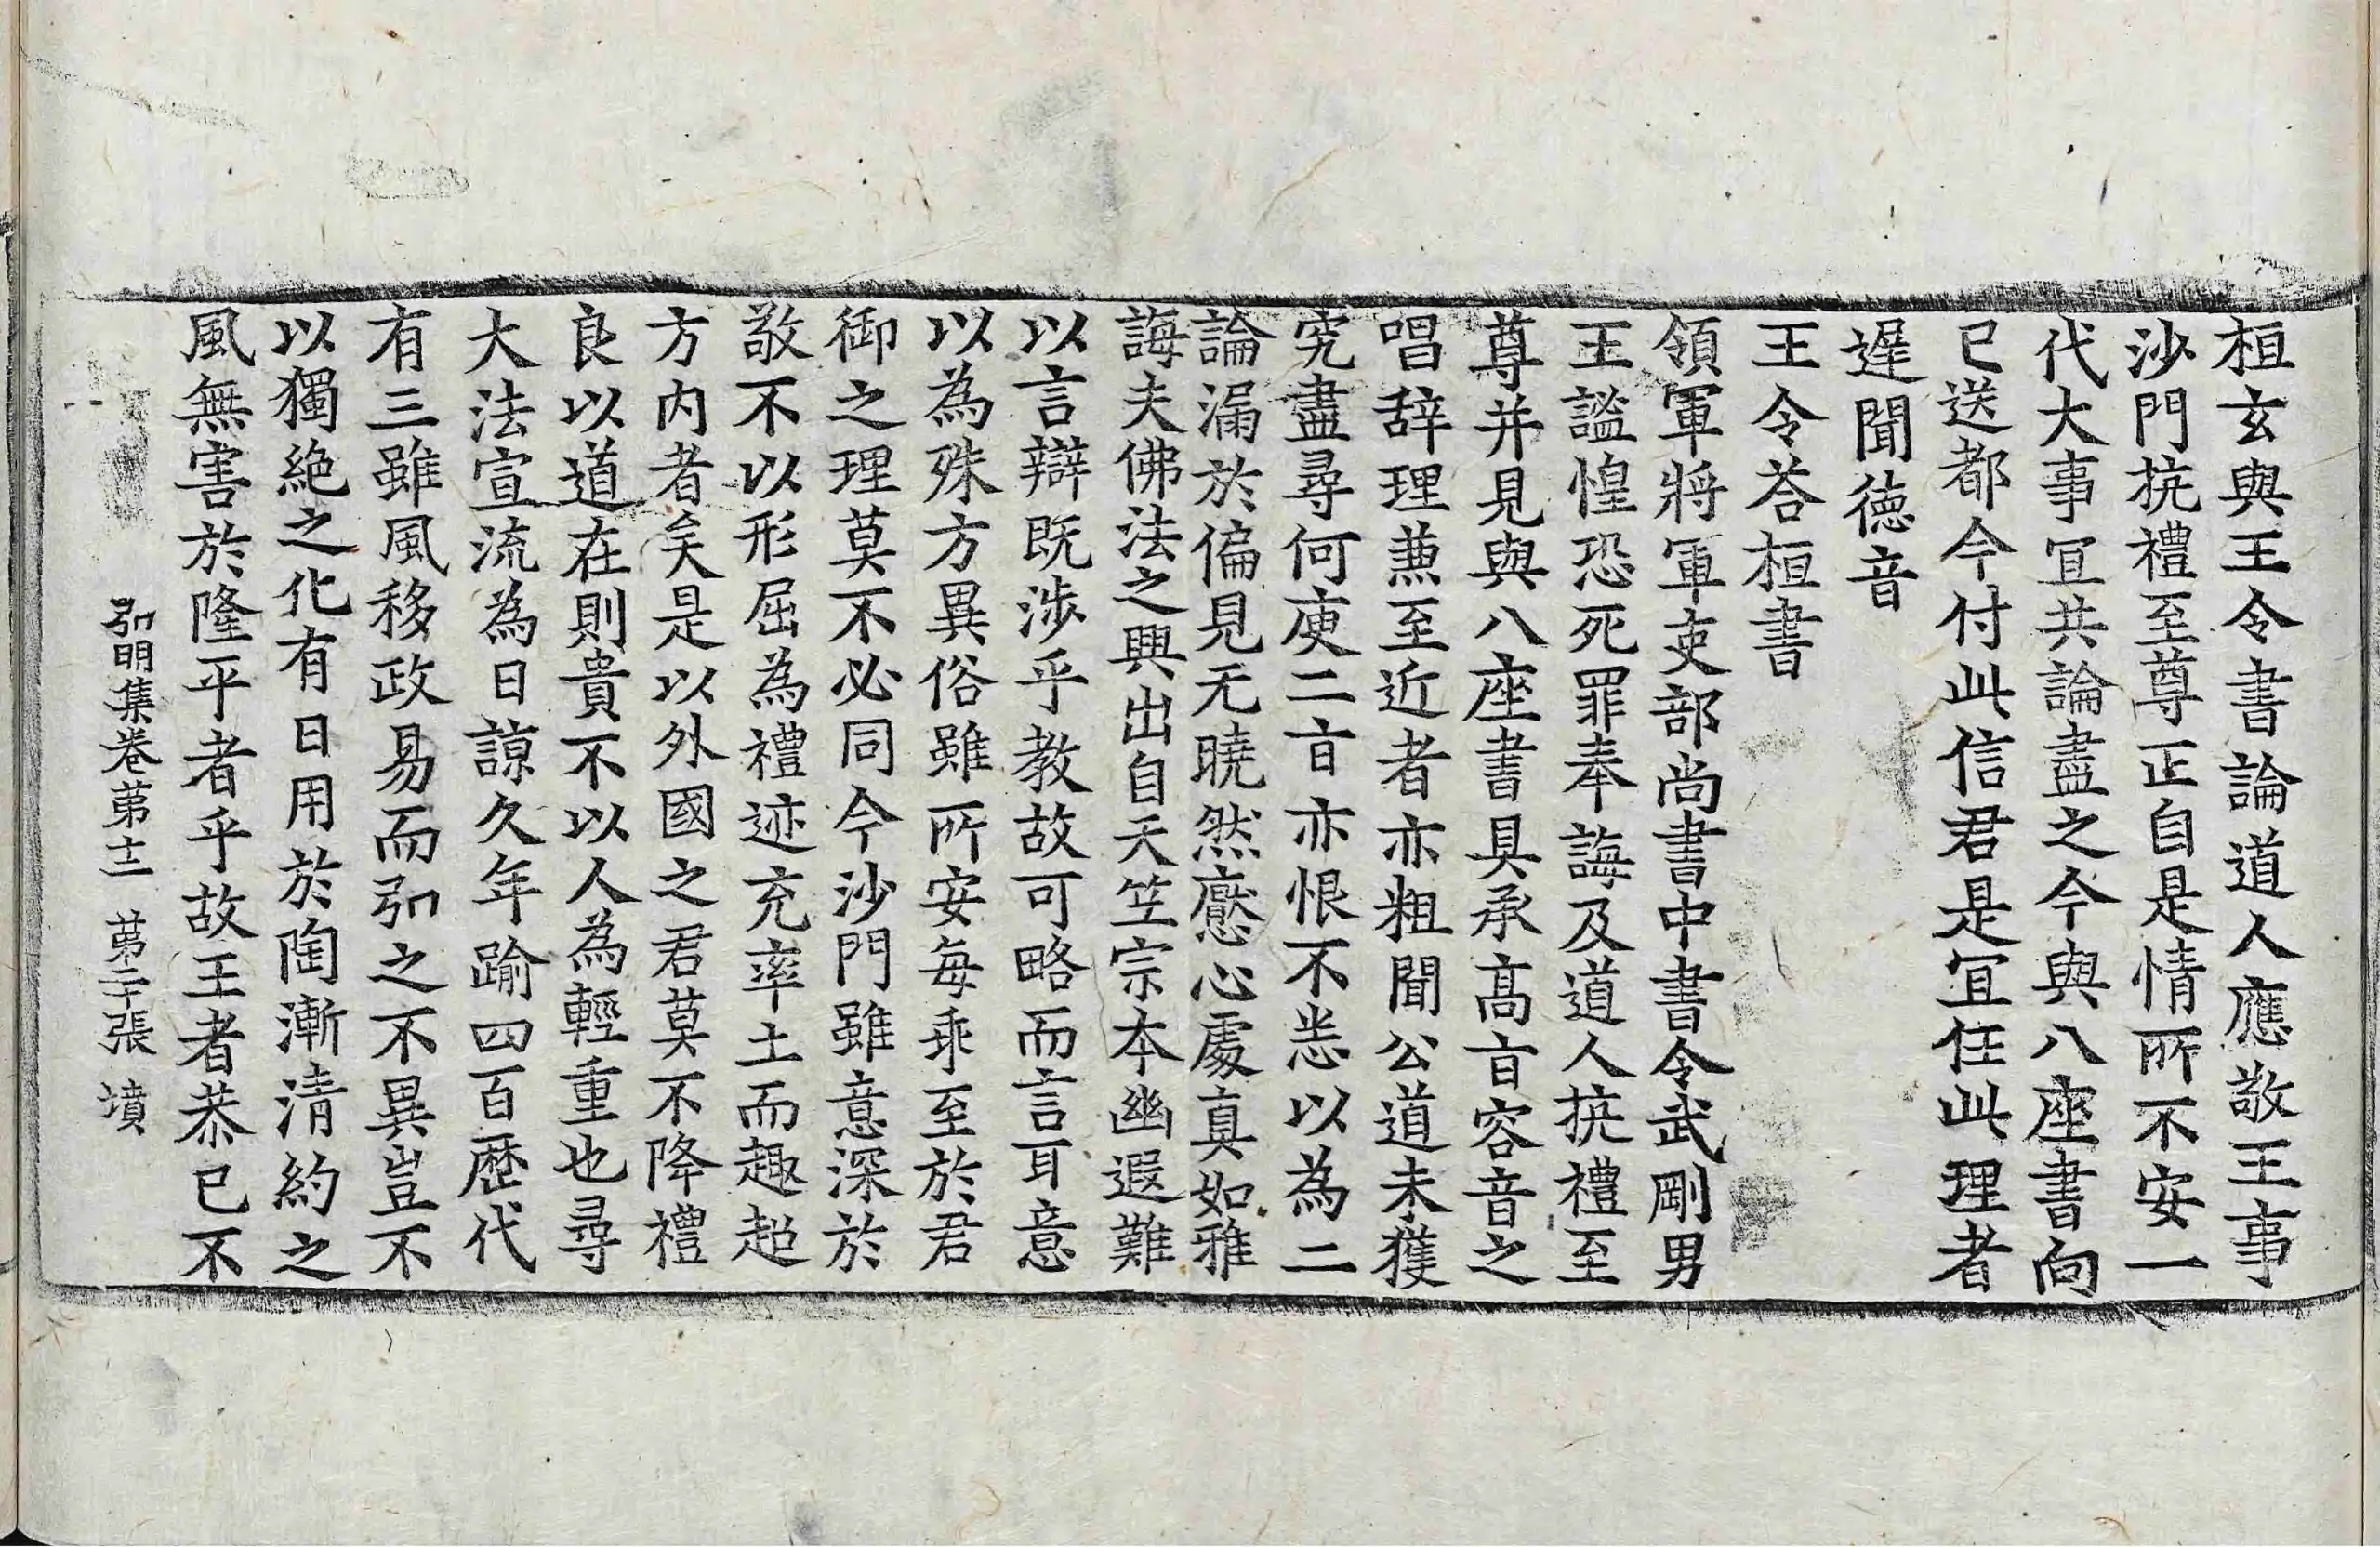 桓玄與王令書論道人應敬王事
沙門抗禮至尊正自是情所不安一
代大事冝共論盡之今與八座書向
已送都今付此信君是冝任此理者
遲聞德音
王令荅桓書
領軍將軍吏部尚書中書令武剛男
王謐惶恐死罪奉誨及道人抗禮至
尊并見與八座書具承高㫖容音之
唱辞理蕭至近者亦粗聞公道未獲
究盡尋何庾二㫖亦恨不悉以為二
論漏於偏見无曉然懕心處真如雅
誨夫佛法之興出自天笁宗本幽遐難
以言辯既涉乎教故可略而言耳意
以為殊方異俗雖所安每乖至於君
御之理莫不必同今沙門雖意深於
敬不以形屈為禮迹充率土而趣超
方内者矣是以外國之君莫不降禮
良以道在則貴不以人為輕重也尋
大法宣流為日諒久年踰四百歷代
有三雖風移政易而弘之不異豈不
以獨絕之化有日用於陶漸清約之
風無害於隆平者乎故王者恭已不
弘明集卷第十二 第二十張 墳